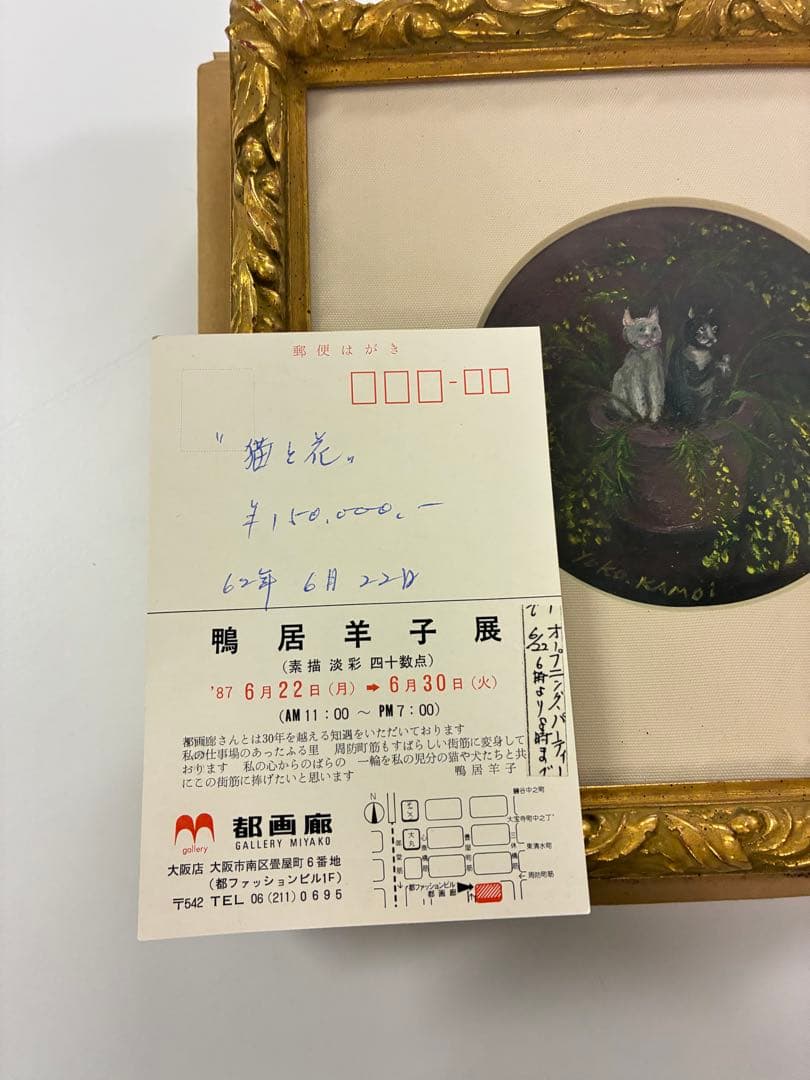 郵便はがき
"猫と花"
￥150,000.-
62年 6月 22日
鴨居羊子展
(素描 淡彩 四十数点)
'87 6月22日(月)➡6月30日(火)
(AM11:00〜PM7:00)
都画廊さんとは30年を越える知遇をいただいております
私の仕事場のあったふる里 周防町筋もすばらしい街筋に変身して
おります 私の心からのばらの 一輪を私の児分の猫や犬たちと共
にこの街筋に捧げたいと思います 鴨居羊子
オープニングパーティー
6/22 6時より8時まで
gallery
都画廊
GALLERY MIYAKO
大阪店 大阪市南区畳屋町6番地
(都ファッションビル1F)
〒542 TEL 06(211)0695
N
そごう
大丸
御堂筋
心斎橋筋
畳屋町筋
三休橋筋
鰻谷中之町
大宝寺町中之丁
東清水町
周防町筋
都ファッションビル
都画廊
YOKO. KAMOi